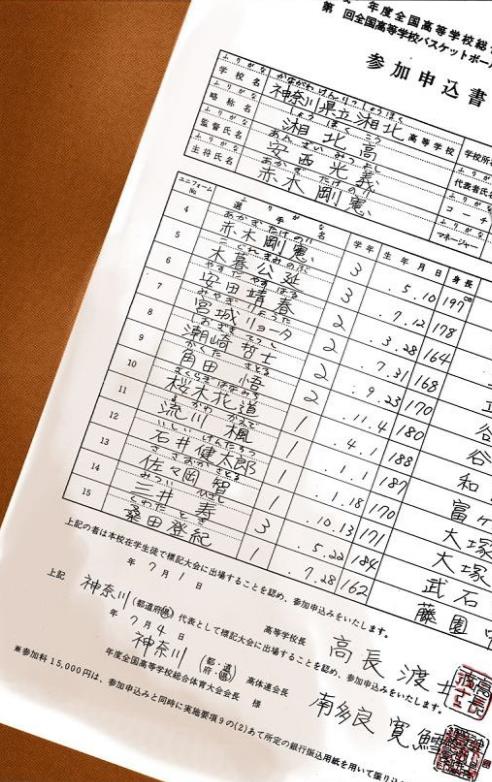 年度全国高等学校総
第 回全国高等学校バスケットボー
参加申込書
ふりがな かながわけんりつしょうほく
学校名 神奈川県立湘北高等学校 学校所
ふりがな しょうほくこう
略称名 湘北高 代表者氏
ふりがな あんざいみつよし ふりが
監督氏名 安西光義 コーチ
ふりがな あかぎたけのり ふりが
主将氏名 赤木剛憲 マネージャー
ユニフォームNo 選手名 ふりがな 学年 生年月日 身長
あかぎたけのり
4 赤木剛憲 3 .5.10 197cm
こぐれきみのぶ
5 木暮公延 3 .7.12 178
やすだやすはる
6 安田靖春 2 .3.28 164
みやぎりょうた
7 宮城リョータ 2 .7.31 168
しおざきてつし
8 潮崎哲士 2 .9.23 170 谷
かくたさとる
9 角田悟 2 .11.4 180 谷
さくらぎはなみち
10 桜木花道 1 .4.1 188 和
るかわかえで
11 流川楓 1 .1.1 187 富ヶ
いしいけんたろう
12 石井健太郎 1 .1.18 170 大塚
ささおかさとる
13 佐々岡智 1 .10.13 171 大塚
みついひさし
14 三井寿 3 .5.22 184 武石
くわたとき
15 桑田登紀 1 .7.28 162 藤園中
上記の者は本校在学生徒で標記大会に出場することを認め、参加申込みをいたします。
年7月1日
高等学校長 高長渡井
上記 神奈川(都道府県)代表として標記大会に出場することを認め、参加申込みをいたします。
年7月4日
神奈川(都・道府・県)高体連会長 南多良寛
年度全国高等学校総合体育大会会長 様
※参加料15,000円は、参加申込みと同時に実施要項9の(2)あて所定の銀行振込用紙を用いて振り込